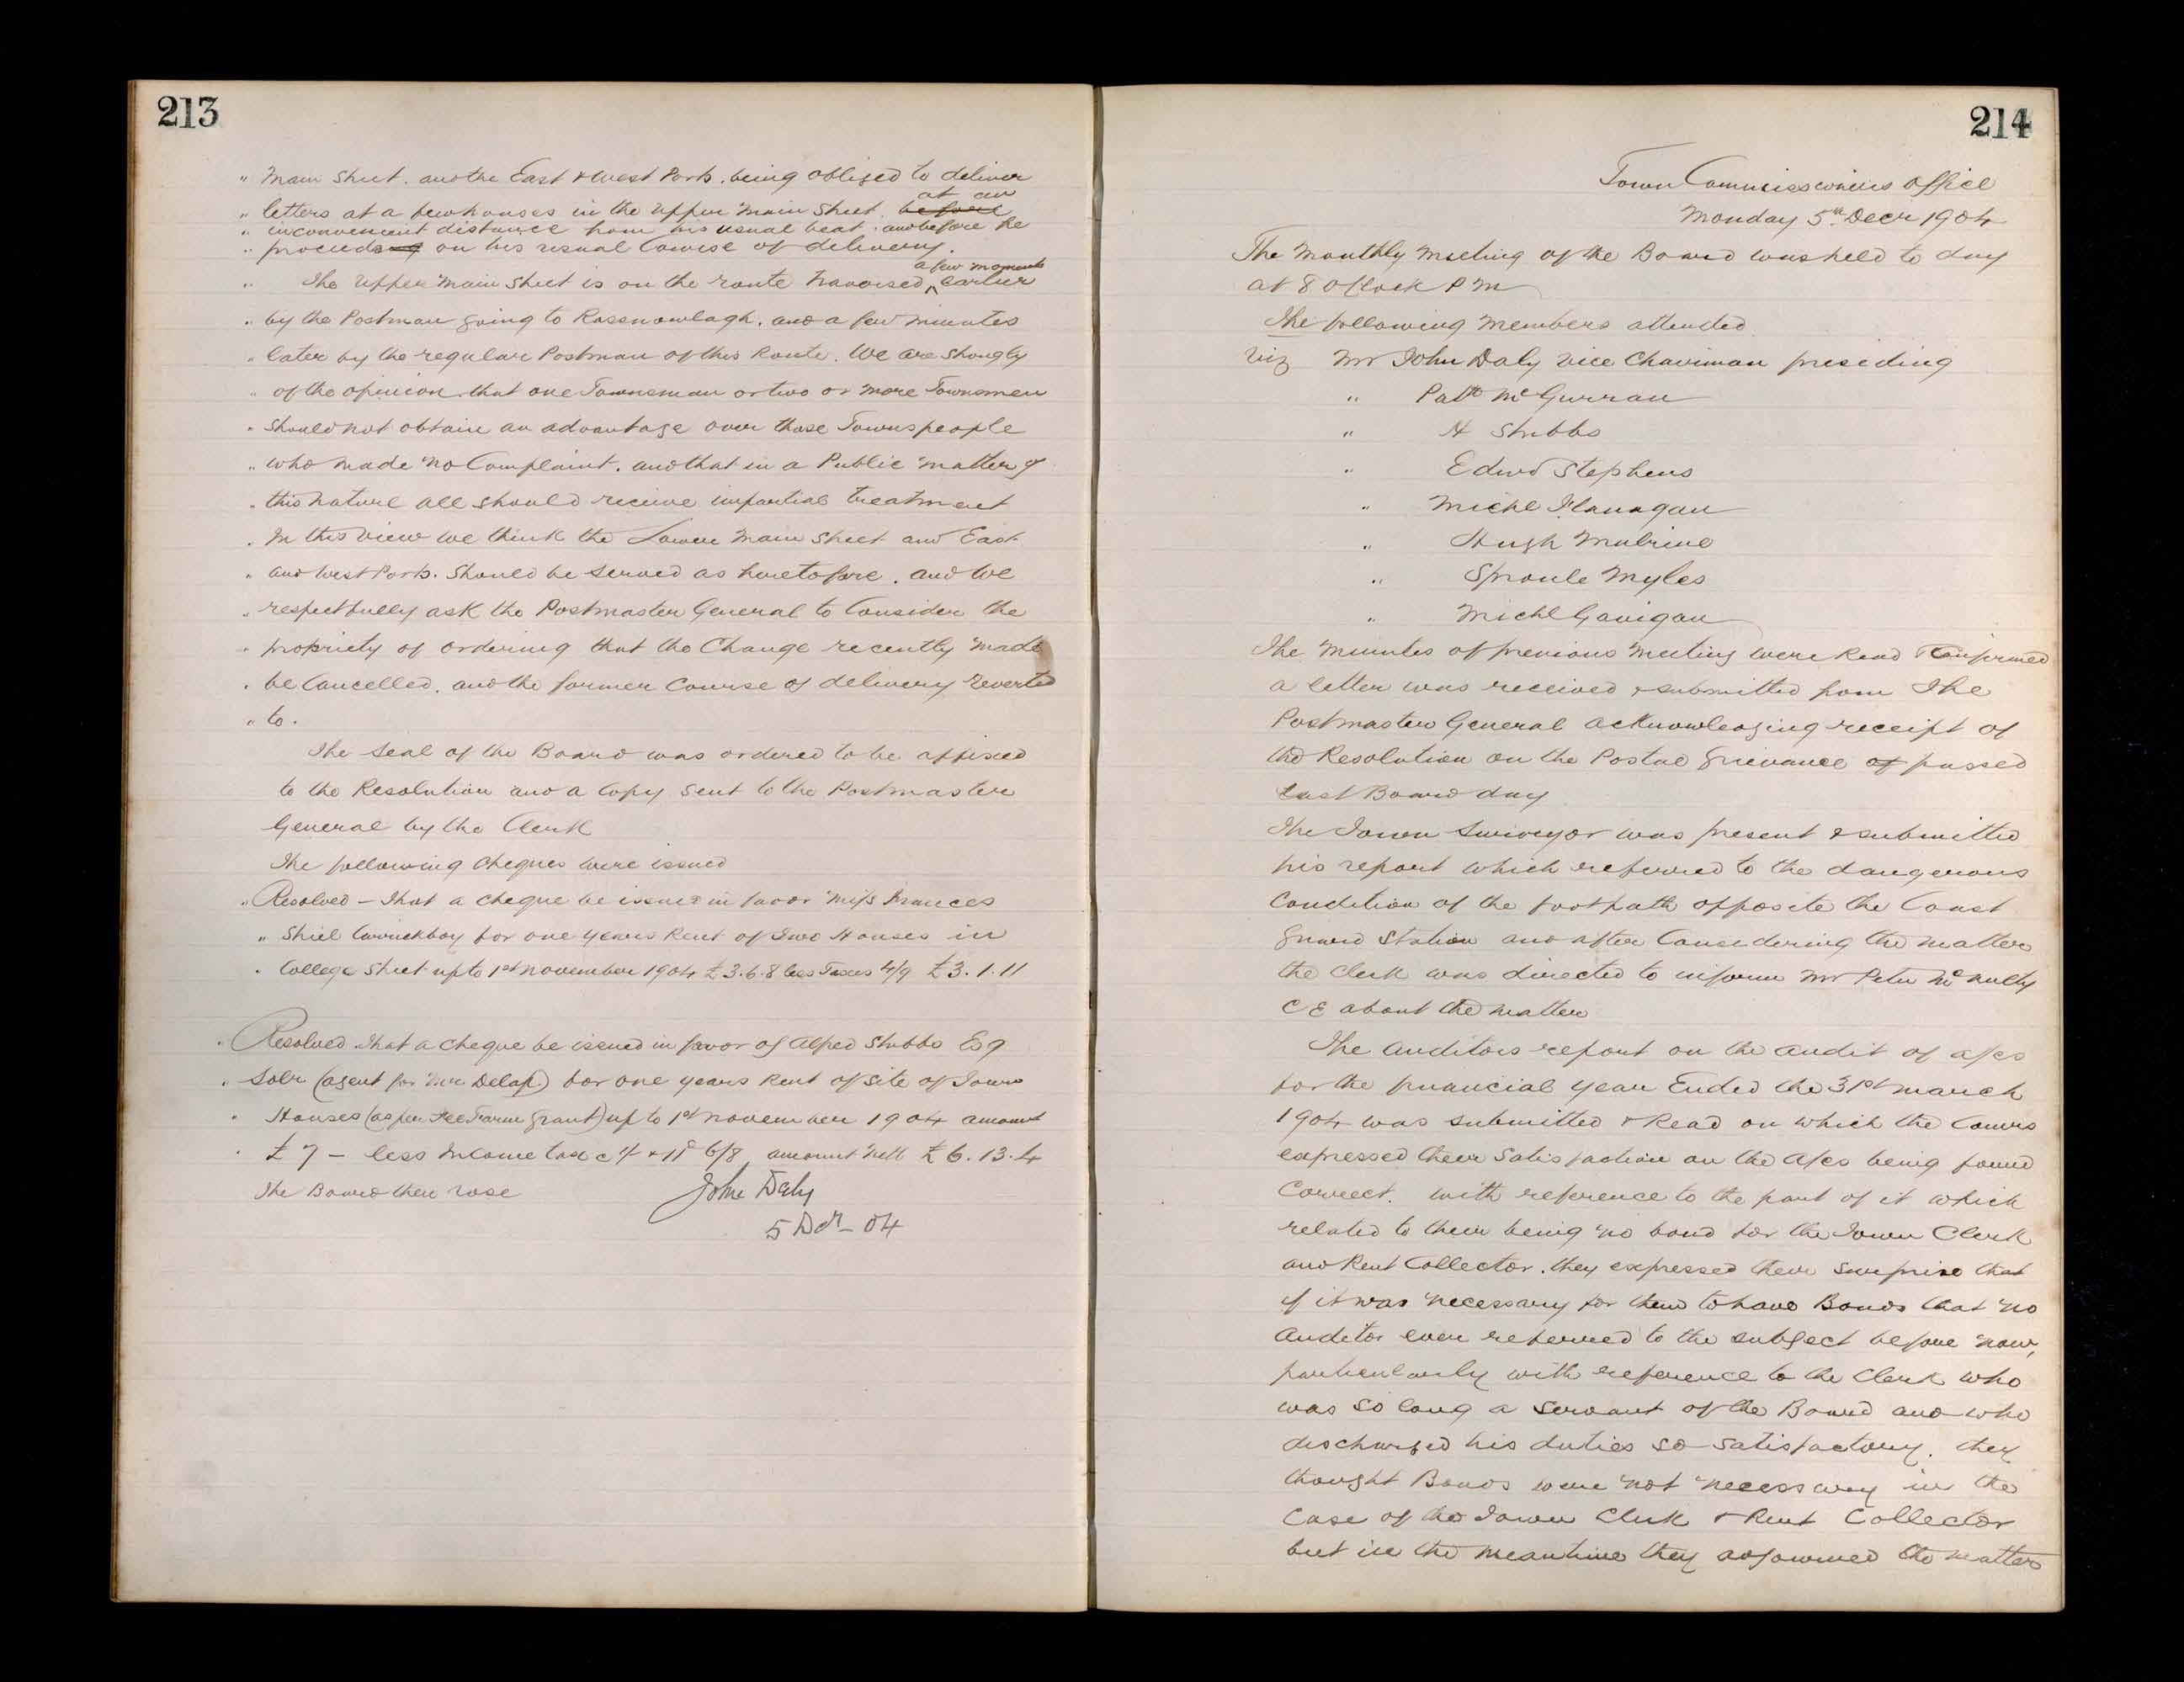 213
" Main Street. and the East & West Ports. being obliged to deliver
at an
" letters at a few houses in the Upper Main Street. before
" inconvenient distance from his usual beat. and before he
" proceeds on his usual Course of delivery.
a few moments
" The Upper Main Street is on the route traversed earlier
" by the Postman going to Rossnowlagh. and a few minutes
" later by the regular Postman of this Route. We are strongly
" of the opinion that one Townsman or two or more Townsmen
" should not obtain an advantage over those Townspeople
" who made no Complaint. and that in a Public matter of
" this nature all should receive impartial treatment
" In this view we think the Lower Main Street and East
" and West Ports. Should be served as heretofore. and We
" respectfully ask the Postmaster General to Consider the
" propriety of ordering that the Change recently made
" be Cancelled. and the former Course of delivery reverted
" to.
The Seal of the Board was ordered to be affixed
to the Resolution and a Copy sent to the Postmaster
General by the Clerk
The following Cheques were issued
" Resolved - That a cheque be issued in favor Miss Frances
" Shiel Carrickboy for one years Rent of Two Houses in
" College Street up to 1st November 1904 £3.6.8 less Taxes 4/9 £3.1.11
" Resolved That a cheque be issued in favor of Alfred Stubbs Esq
" Solr (agent for Mrs Delap) for one years Rent of Site of Town
" Houses (as per Fee Farm Grant) up to 1st November 1904 amount
" £7 - less Income tax @ 11d 6/8 amount nett £6.13.4
The Board then rose John Daly
5 Dcr - 04
214
Town Commissioners Office
Monday 5th Decr 1904
The Monthly Meeting of the Board was held to day
at 8 O Clock P M
The following Members attended
Viz Mr John Daly Vice Chairman presiding
" Patk McGurran
" H Stubbs
" Edwd Stephens
" Michl Flanagan
" Hugh Mulrine
" Sproule Myles
" Michl Gavigan
The Minutes of previous Meeting were Read & Confirmed
a letter was received & submitted from The
Postmaster General acknowledging receipt of
the Resolution on the Postal Grievance of passed
last Board day
The Town Surveyor was present & submitted
his report which referred to the dangerous
Condition of the footpath opposite the Coast
Guard Station and after Considering the matter
the Clerk was directed to inform Mr Peter McNulty
C E about the matter
The Auditors report on the Audit of a/cs
for the financial year Ended the 31st March
1904 was submitted & Read on which the Comrs
expressed their Satisfaction on the A/cs being found
Correct. with reference to the part of it which
related to their being no bond for the Town Clerk
and Rent Collector. they expressed their surprise that
if it was necessary for them to have Bonds that no
Auditor ever referred to the subject before now,
particularly with reference to the Clerk who
was so long a Servant of the Board and who
discharged his duties so satisfactory. they
thought Bonds were not necessary in the
Case of the Town Clerk & Rent Collector
but in the meantime they adjourned the matter